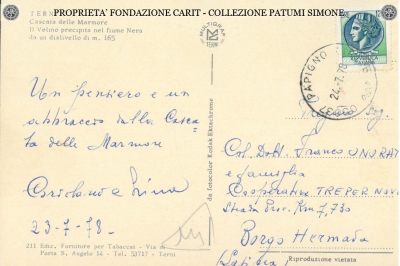 PROPRIETA' FONDAZIONE CARIT - COLLEZIONE PATUMI SIMONE
Cascata delle Marmore
Il Velino precipita nel fiume Nera
da un dislivello di m. 165
MULTIGRAF
Un pensiero e un
abbraccio dalla Casca
ta delle Marmore
23-7-78
211 Ediz. Fornature per Tabaccai - Via di
Porta S. Angelo 14 - Tel. 53717 - Terni
da fotocolor Kodak Ektachrome
PAPIGNO
24.7.78
Col. Dott. Franco
e famiglia
Cooperativa TREPER NOVI
Strada Prov. Km 7,730
Borgo Hermada
Riproduzione vietata
(Latina)